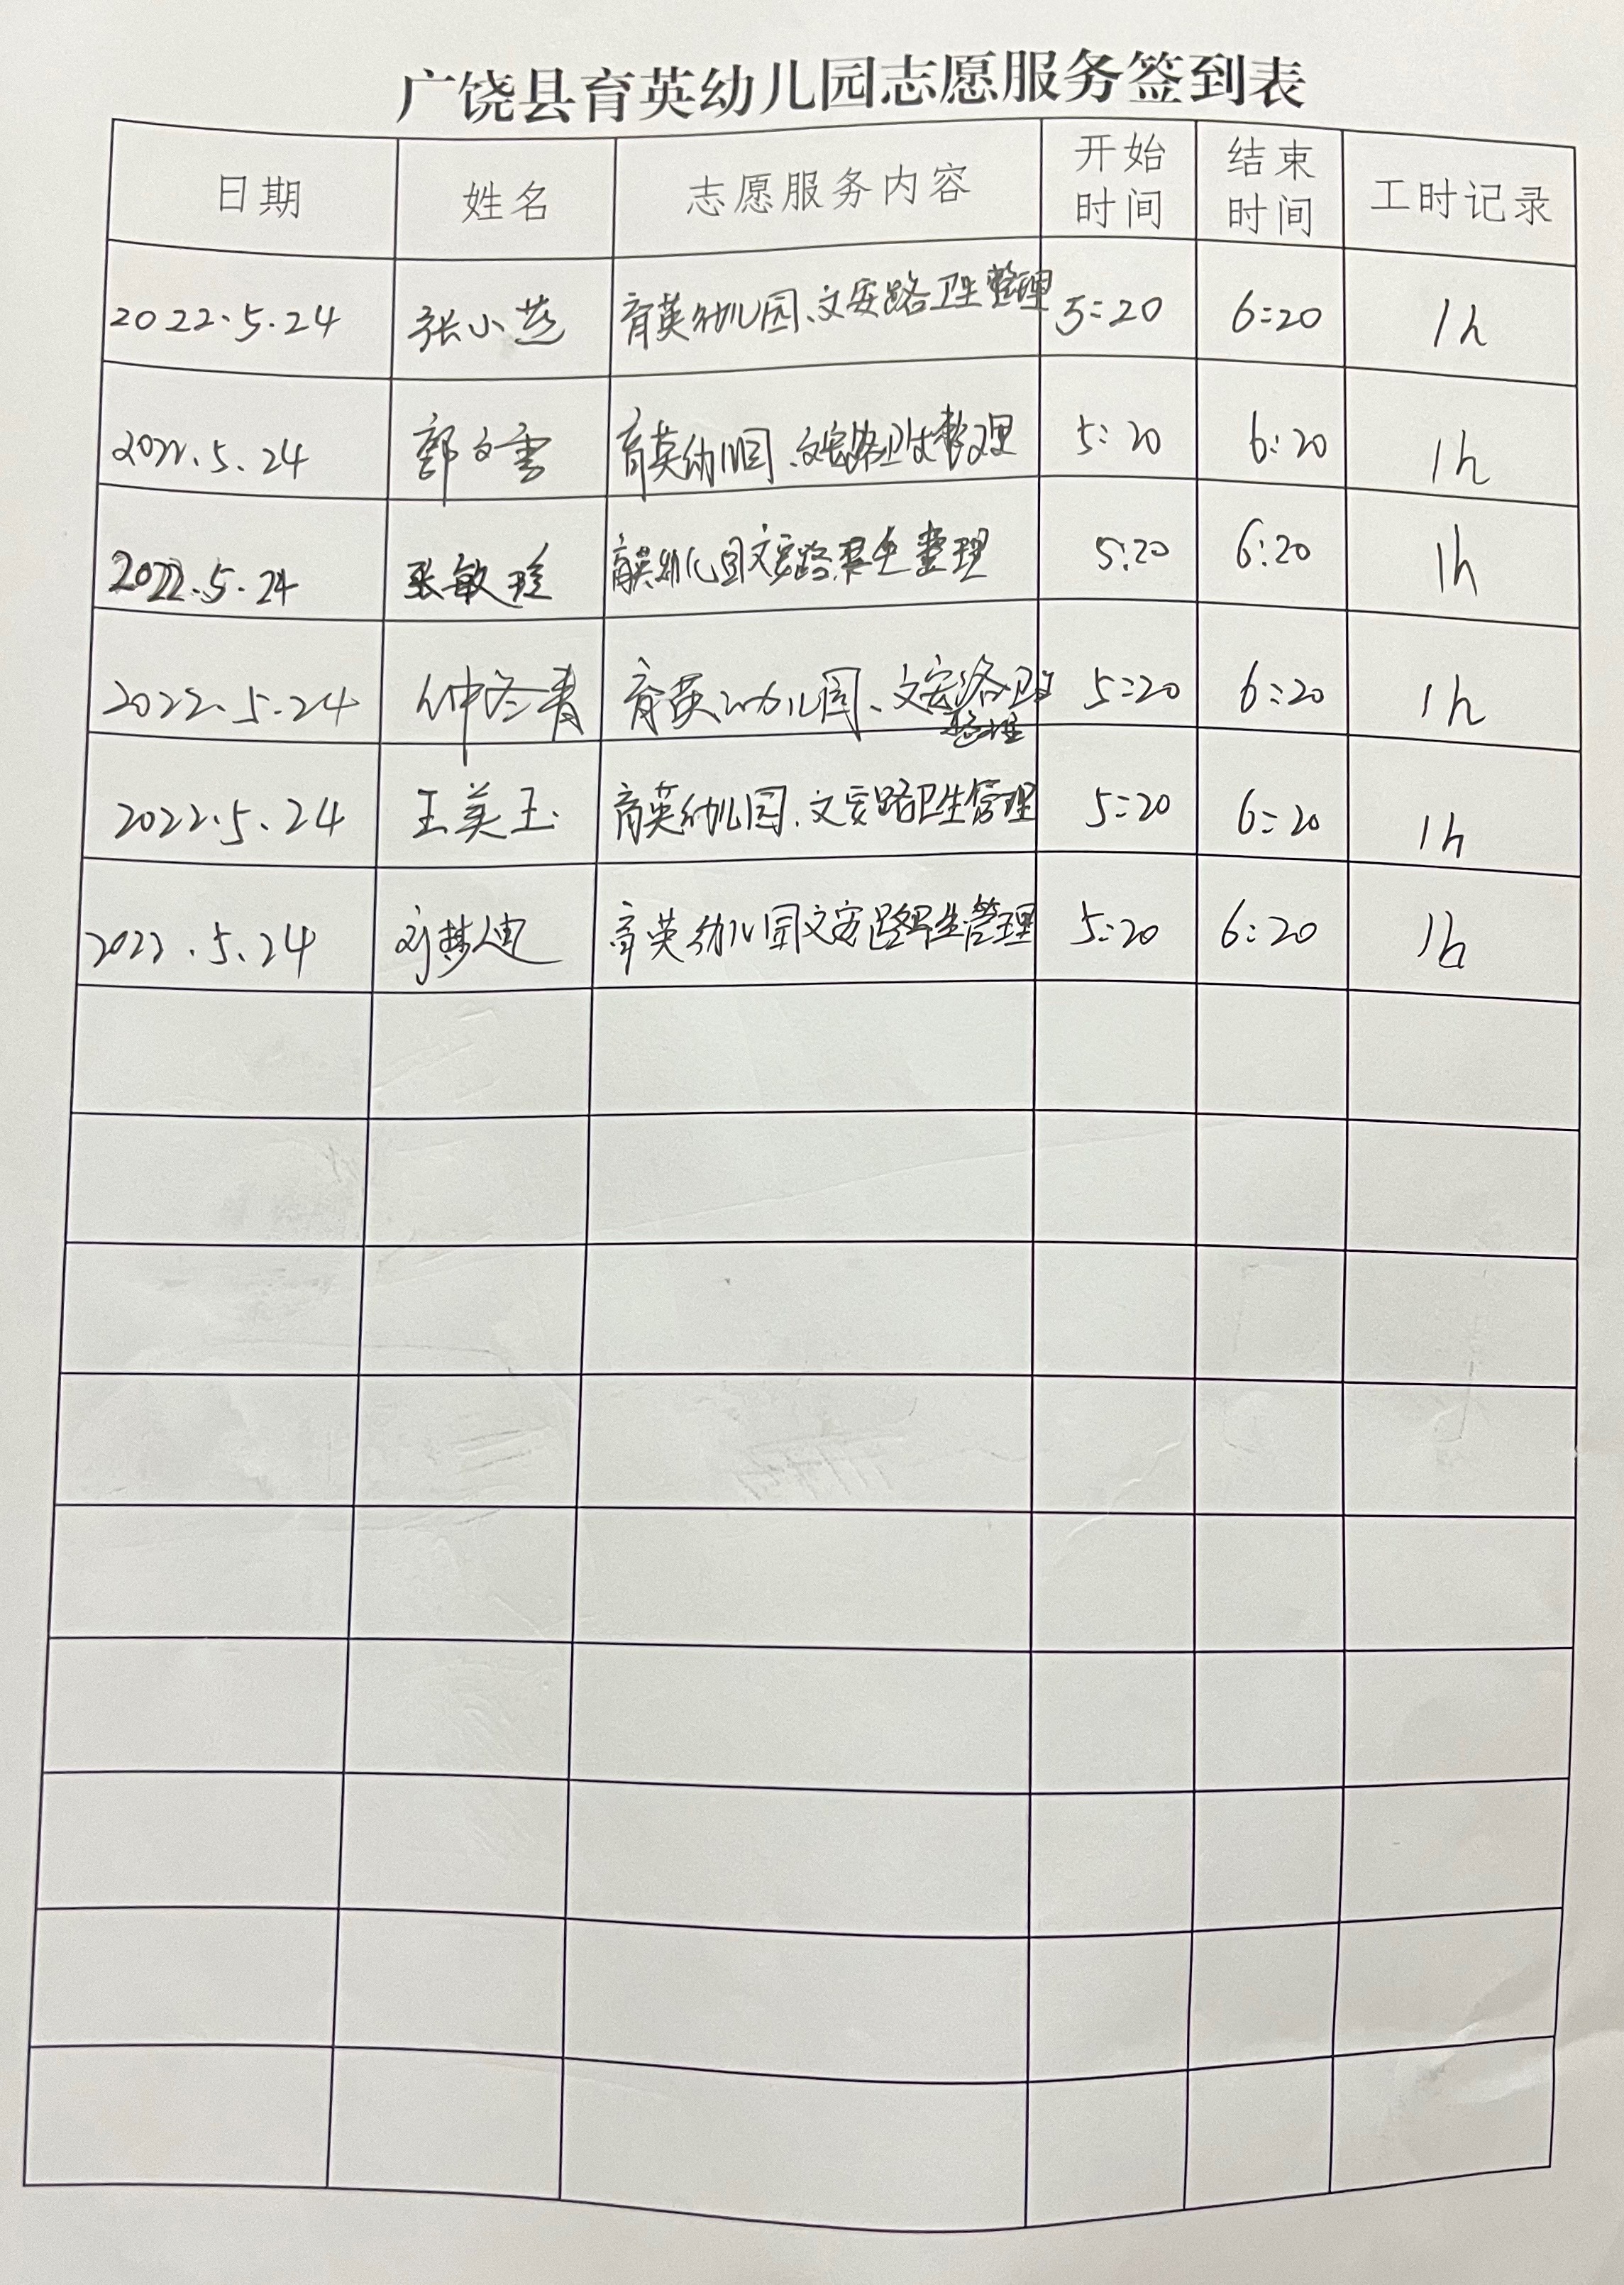 广饶县育英幼儿园志愿服务签到表
日期 姓名 志愿服务内容 开始时间 结束时间 工时记录
2022.5.24 张小燕 育英幼儿园、文安路卫生整理 5:20 6:20 1h
2022.5.24 郭文雲 育英幼儿园、文安路卫生整理 5:20 6:20 1h
2022.5.24 张敏珍 育英幼儿园文安路卫生整理 5:20 6:20 1h
2022.5.24 仲冬青 育英幼儿园、文安路卫生整理 5:20 6:20 1h
2022.5.24 王美玉 育英幼儿园、文安路卫生管理 5:20 6:20 1h
2022.5.24 刘梦迪 育英幼儿园文安路卫生管理 5:20 6:20 1h